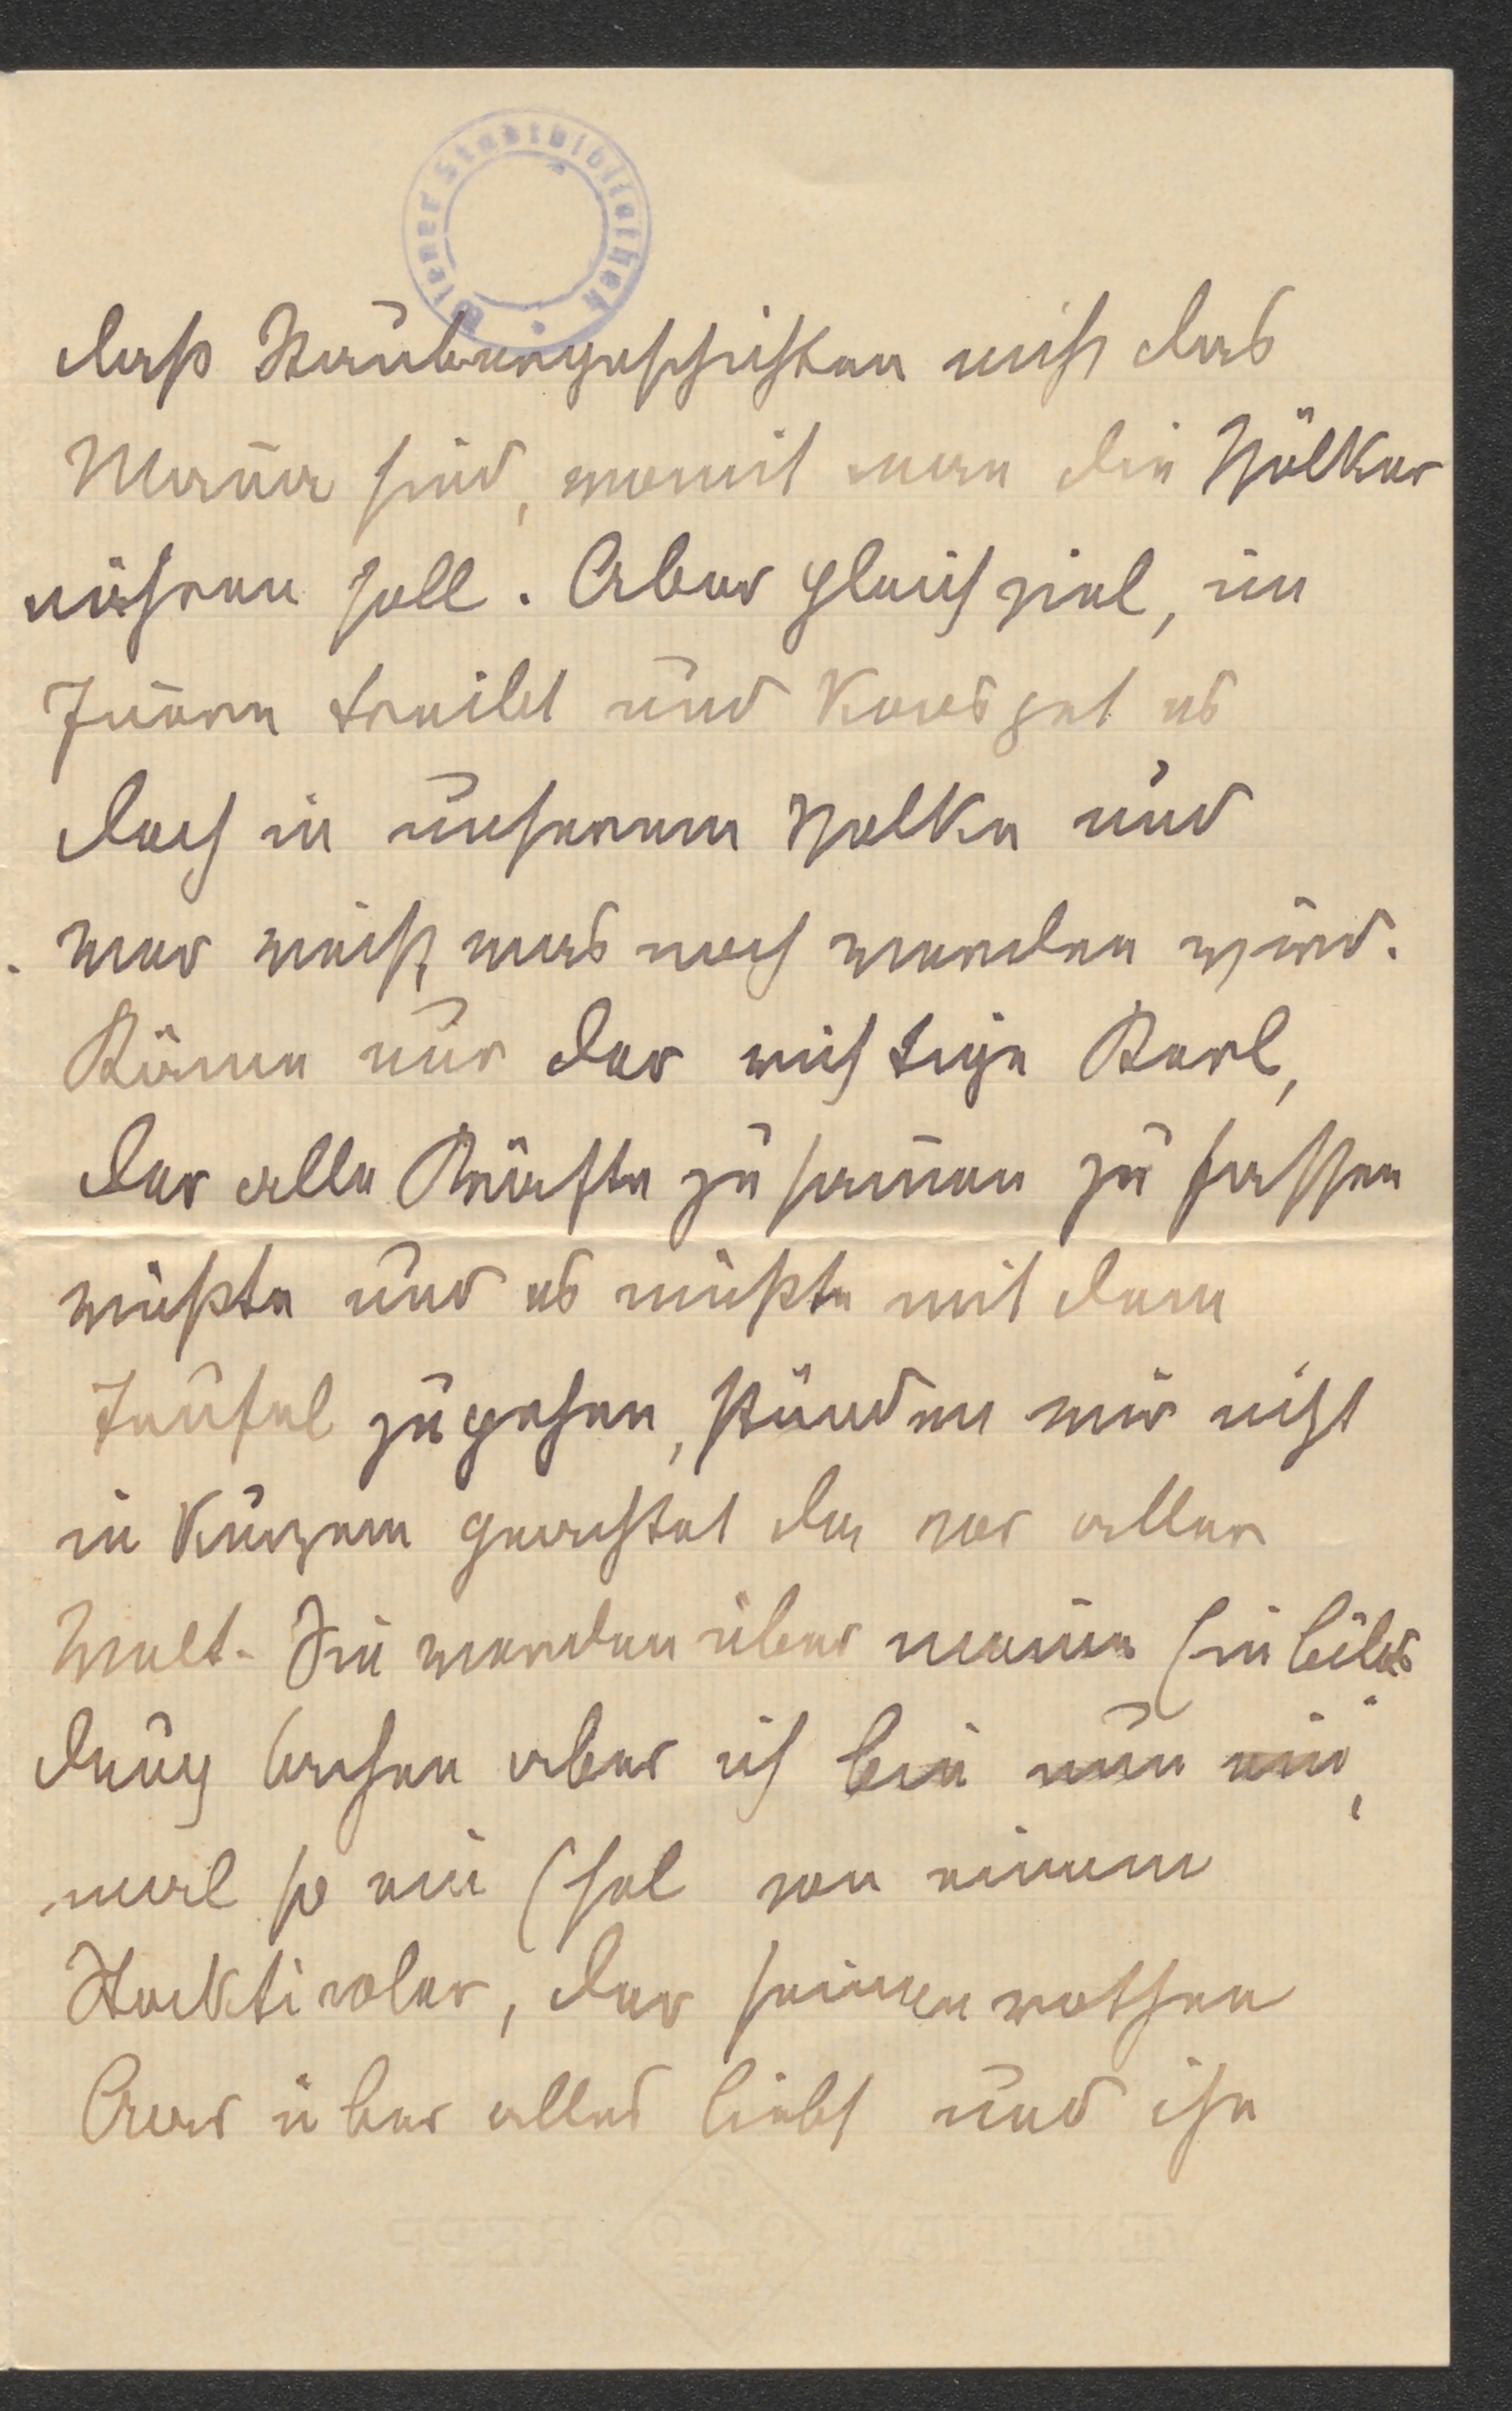 Wiener Stadtbibliothek
daß Räubergeschichten nicht das
Mana̅ sind, womit man die Völker
nähren soll. Aber gleichviel, im
In̅ern treibt und knospet es
doch in unserem Volke und
wer weiß was noch werden wird.
Käme nur der richtige Kerl,
der alle Kräfte zusam̅en zu fassen
wüßte und es müßte mit dem
Teufel zugehen, stünden wir nicht
in Kurzem geachtet da vor aller
Welt. Sie werden über meine Einbil-
dung lachen aber ich bin nun ein-
mal so ein Esel von einem
Stocktiroler, der seinen rothen
Aar über alles liebt und ihn